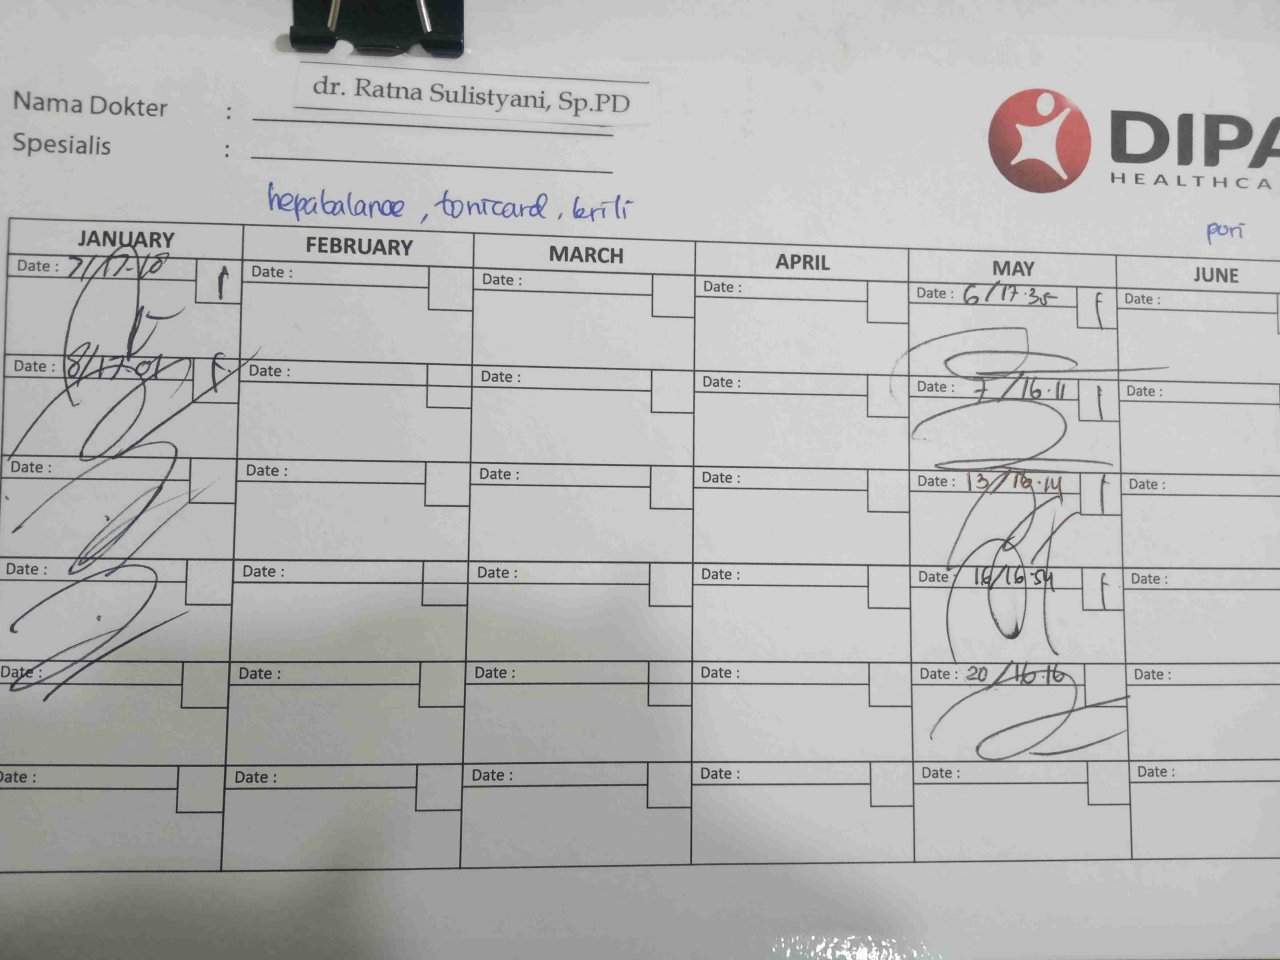 dr. Ratna Sulistyani, Sp.PD
Nama Dokter :
Spesialis :
DIPA
HEALTHCA
hepabalance, tonicard, krili
pori
JANUARY FEBRUARY MARCH APRIL MAY JUNE
Date : 7/17-18 Date : Date : Date : Date : 6/17.35 Date :
Date : 8/17-01 Date : Date : Date : Date : 7/16.11 Date :
Date : Date : Date : Date : Date : 13/16.14 Date :
Date : Date : Date : Date : Date 16/16.54 Date :
Date : Date : Date : Date : Date : 20/16.16 Date :
Date : Date : Date : Date : Date : Date :